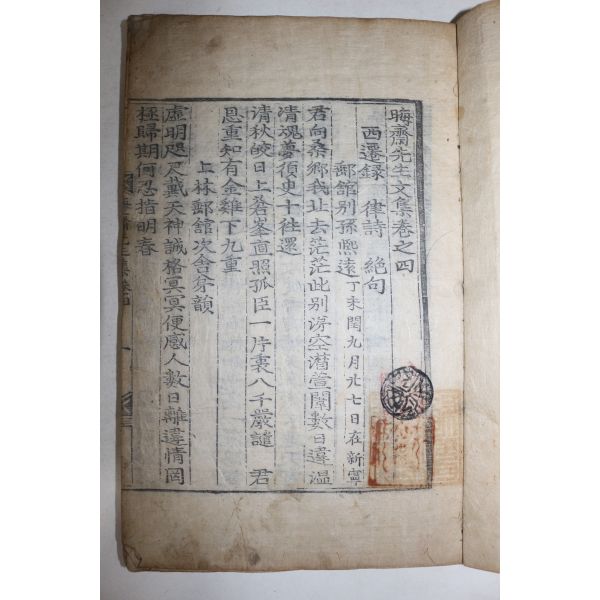 晦齋先生文集卷之四
西遷録 律詩 絶句
郵館別孫熙遠 丁未閏九月廿七日在新寧
君向桑鄉我北去茫茫此別淚空潸萱闈數日違溫
凊魂夢須臾十往還
清秋皎日上蒼峯直照孤臣一片裏八千嚴譴 君
恩重知有金雞下九重
上林郵舘次舍弟韻
虛明咫尺戴天神誠格冥冥便感人數日離違情罔
極歸期何忍指明春